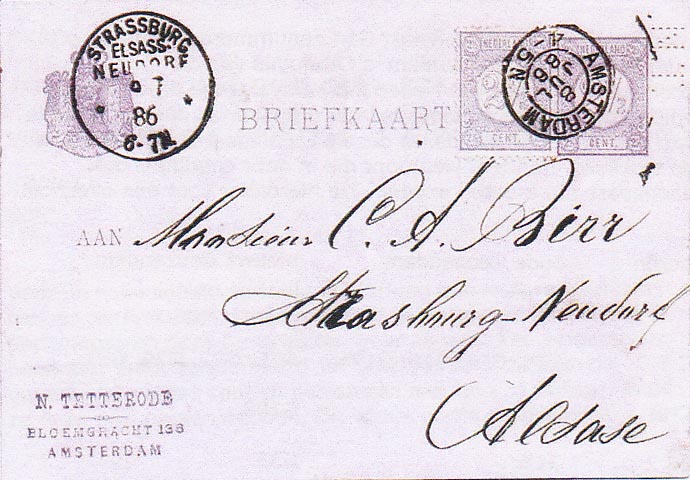 STRASSBURG
ELSASS-
NEUDORF
86
6-7N
BRIEFKAART
NEDERLAND
CENT.
NEDERLAND
CENT.
AMSTERDAM
AAN Monsieur C. A. Birr
Strasburg-Neudorf
Alsase
N. TETTERODE
BLOEMGRACHT 138
AMSTERDAM